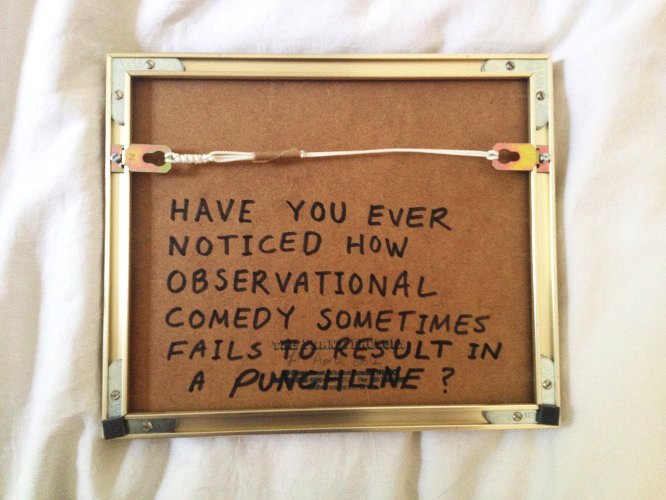 HAVE YOU EVER
NOTICED HOW
OBSERVATIONAL
COMEDY SOMETIMES
FAILS TO RESULT IN
A PUNCHLINE ?